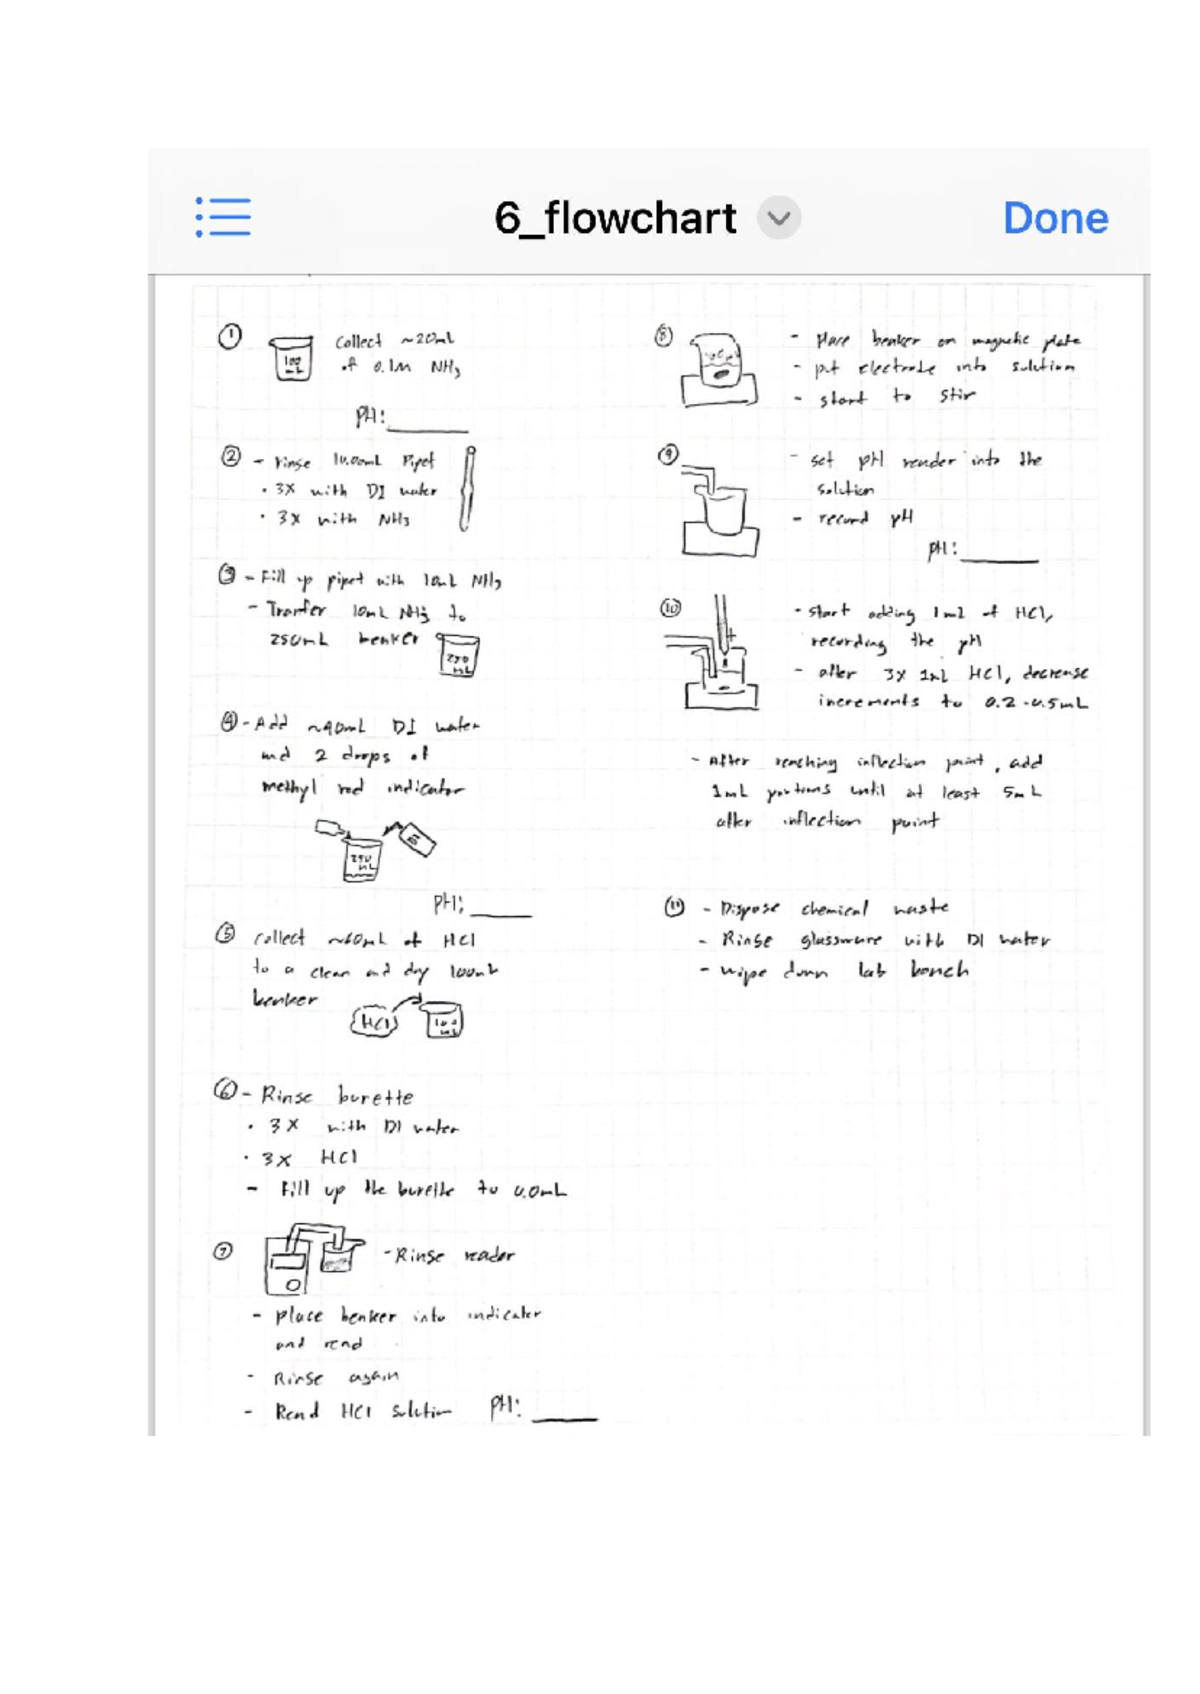 6_flowchart
Done
① collect ~20mL
of 0.1M NH₃
100 mL
PH: ____
② - rinse 10.00mL Pipet
• 3X with DI water
• 3X with NH₃
③ - Fill up pipet with 10mL NH₃
- Tranfer 10mL NH₃ to
250mL beaker
250 mL
④ - Add ~40mL DI water
and 2 drops of
methyl red indicator
250 mL
PH: ____
⑤ collect ~60mL of HCl
to a clean and dry 100mL
beaker
HCl
100 mL
⑥ - Rinse burette
• 3X with DI water
• 3X HCl
- Fill up the burette to 0.0mL
⑦ - Rinse reader
- place beaker into indicator
and read
- Rinse again
- Read HCl solution PH: ____
⑧ - place beaker on magnetic plate
- put electrode into solution
- start to stir
⑨ - set pH reader into the
solution
- record pH
pH: ____
⑩ - start adding 1mL of HCl,
recording the pH
- after 3X 1mL HCl, decrease
increments to 0.2-0.5mL
- After reaching inflection point, add
1mL portions until at least 5mL
after inflection point
⑪ - Dispose chemical waste
- Rinse glassware with DI water
- wipe down lab bench